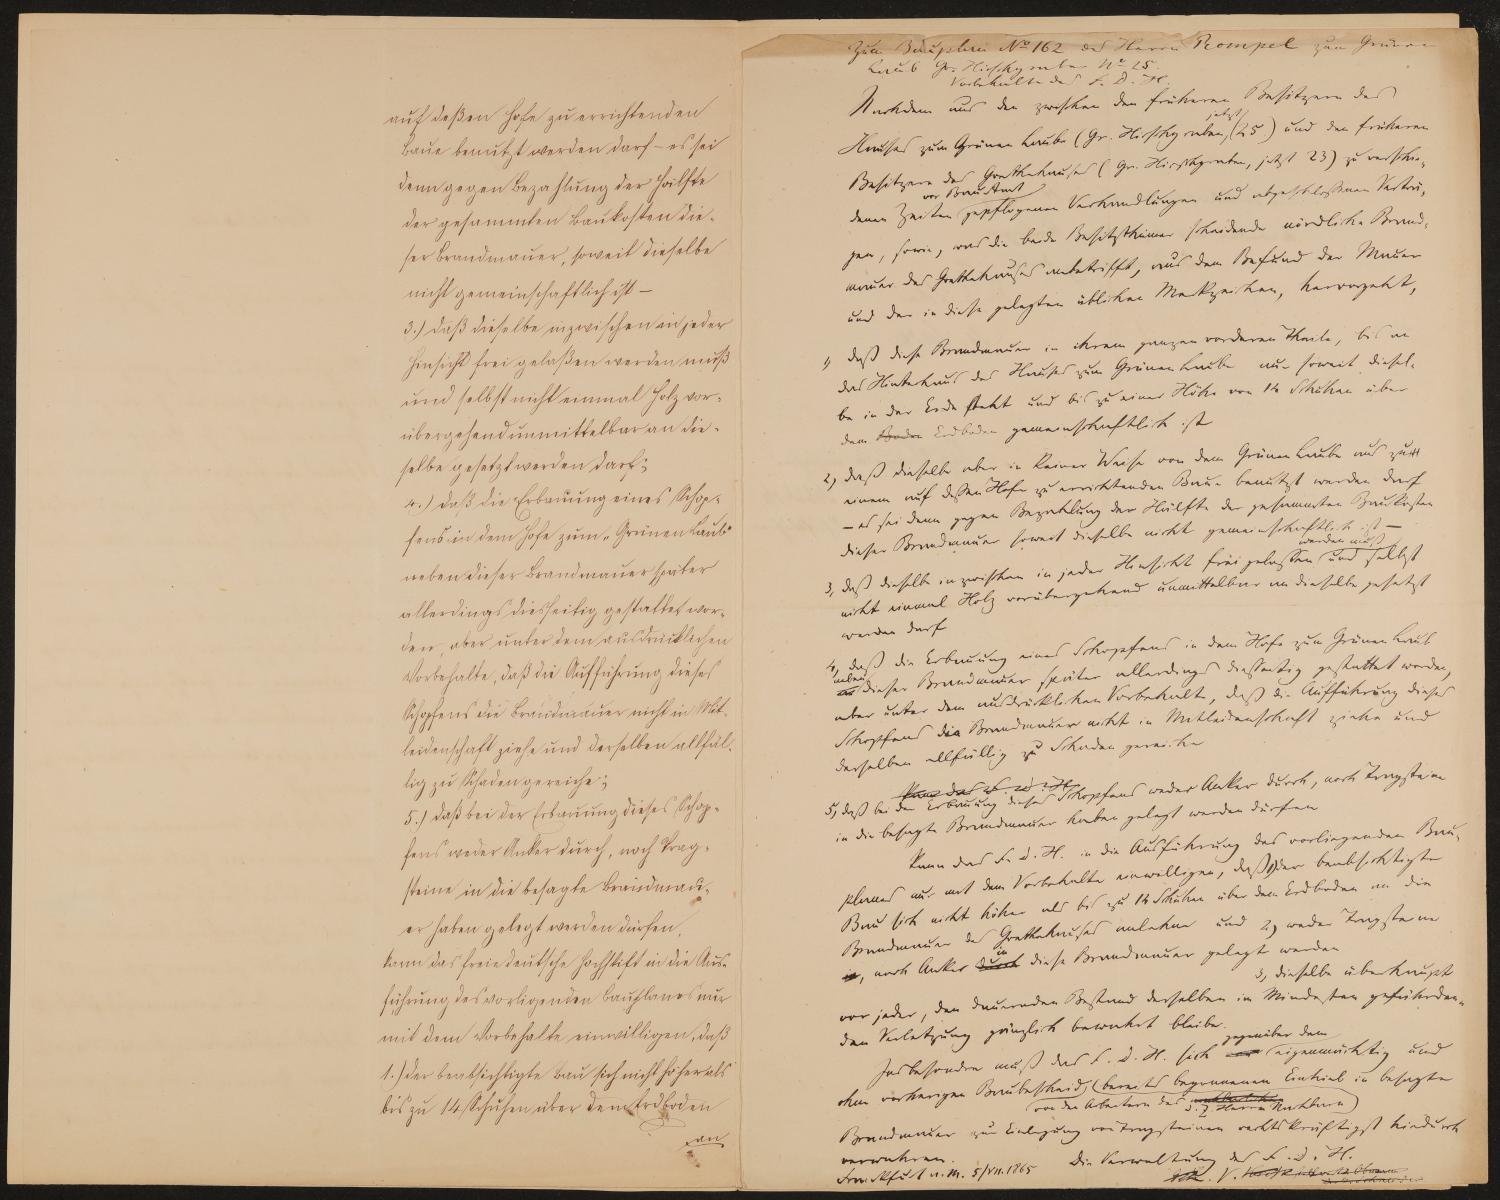 auf deßen Hofe zu errichtenden
Baue benutzt werden darf – es sei
denn gegen Bezahlung der Hälfte
der gesammten Baukosten die-
ser Brandmauer, soweit dieselbe
nicht gemeinschaftlich ist –
3.) daß dieselbe inzwischen in jeder
Hinsicht frei gelaßen werden muß
und selbst nicht einmal Holz vor-
übergehend unmittelbar an die-
selbe gesetzt werden darf;
4.) daß die Erbauung eines Schop-
fens in dem Hofe zum „Grünen Laub“
neben dieser Brandmauer später
allerdings diesseitig gestattet wor-
den, aber unter dem ausdrücklichen
Vorbehalte, daß die Aufführung dieses
Schopfens die Brandmauer nicht in Mit-
leidenschaft ziehe und derselben allfäl-
lig zu Schaden gereiche;
5.) daß bei der Erbauung dieses Schop-
fens weder Anker durch, noch Trag-
steine in die besagte Brandmau-
er haben gelegt werden dürfen.
Kann das freie deutsche Hochstift in die Aus-
führung des vorligenden Bauplanes nur
mit dem Vorbehalte einwilligen, daß
1.) der beabsichtigte Bau sich nicht höher als
bis zu 14 Schuhen über dem Erdboden
an
Zum Bauplan No 162 des Herrn Rompel zum Grünen
Laub Gr. Hirschgraben No 25.
Vorbehalte des F. D. H.
Nachdem aus den zwischen den früheren Besitzern des
Hauses zum Grünen Laube (Gr. Hirschgraben, jetzt 25) und den früheren
Besitzern des Goethehauses (Gr. Hirschgraben, jetzt 23) zu verschie-
denen Zeiten vor Bau Amt gepflogenen Verhandlungen und abgeschlossenen Verträ-
gen, sowie, was die beide Besitzthümer scheidende nördliche Brand-
mauer des Goethehauses anbetrifft, aus dem Befund der Mauer
und der in diese gelegten üblichen Merkzeichen, hervorgeht,
1, daß diese Brandmauer in ihrem ganzen vorderen Theile, bis an
das Hinterhaus des Hauses zum Grünen Laube nur soweit diesel-
be in der Erde steht und bis zu einer Höhe von 14 Schuhen über
dem Boden Erdboden gemeinschaftlich ist
2, daß dieselbe aber in keiner Weise von dem Grünen Laube aus zu
einem auf dessen Hofe zu errichtenden Baue benutzt werden darf
– es sei denn gegen Bezahlung der Hälfte der gesammten Baukosten
dieser Brandmauer soweit dieselbe nicht gemeinschaftlich ist –
3, daß dieselbe inzwischen in jeder Hinsicht frei gelassen werden muß und selbst
nicht einmal Holz vorübergehend unmittelbar an dieselbe gesetzt
werden darf
4, daß die Erbauung eines Schopfens in dem Hofe zum Grünen Laub
neben dieser Brandmauer später allerdings diesseitig gestattet worden,
aber unter dem ausdrücklichen Vorbehalte, daß die Aufführung dieses
Schopfens die Brandmauer nicht in Mitleidenschaft ziehe und
derselben allfällig zu Schaden gereiche
Kann das F. D. H.
5, daß bei der Erbauung dieses Schopfens weder Anker durch, noch Tragsteine
in die besagte Brandmauer haben gelegt werden dürfen
Kann das F. D. H. in die Ausführung des vorliegenden Bau-
planes nur mit dem Vorbehalte einwilligen, daß 1, der beabsichtigte
Bau sich nicht höher als bis zu 14 Schuhen über dem Erdboden an die
Brandmauer des Goethehauses anlehne und 2, weder Tragsteine
in, noch Anker durch in diese Brandmauer gelegt werden
3, dieselbe überhaupt
vor jeder, den dauernden Bestand derselben im Mindesten gefährden-
den Verletzung gänzlich bewahrt bleibe.
Insbesondere muß das F. D. H. sich gegenüber dem eigenmächtig und
ohne vorherigen Baubescheid (bereits begonnenen Eintrieb in besagte
von den Arbeitern des Herrn Nachbarn)
Brandmauer zur Einlegung von Tragsteinen rechtskräftigst hiedurch
verwahren.
Frankfurt a. M. 5/VII. 1865 Die Verwaltung des F. D. H.